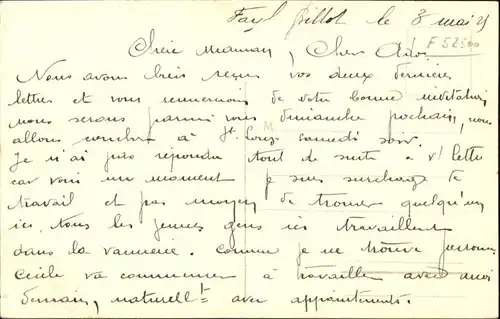 Fayl Billot le 3 mai 25
F 52500
Chère Maman, Cher Ado.
Nous avons bien reçus vos deux dernières
lettres et vous remercions de votre bonne invitation,
nous serons parmi vous dimanche prochain, nous
allons coucher à St. Louis samedi soir.
Je n'ai pas répondu tout de suite a v! lettre
car voici un moment je suis surchargé de
travail et pas moyen de trouver quelqu'un
ici, tous les jeunes gens ici travaillent
dans la vannerie. Comme je ne trouve personne
Cécile va commencer à travailler avec moi
demain, naturell.t avec appointements.